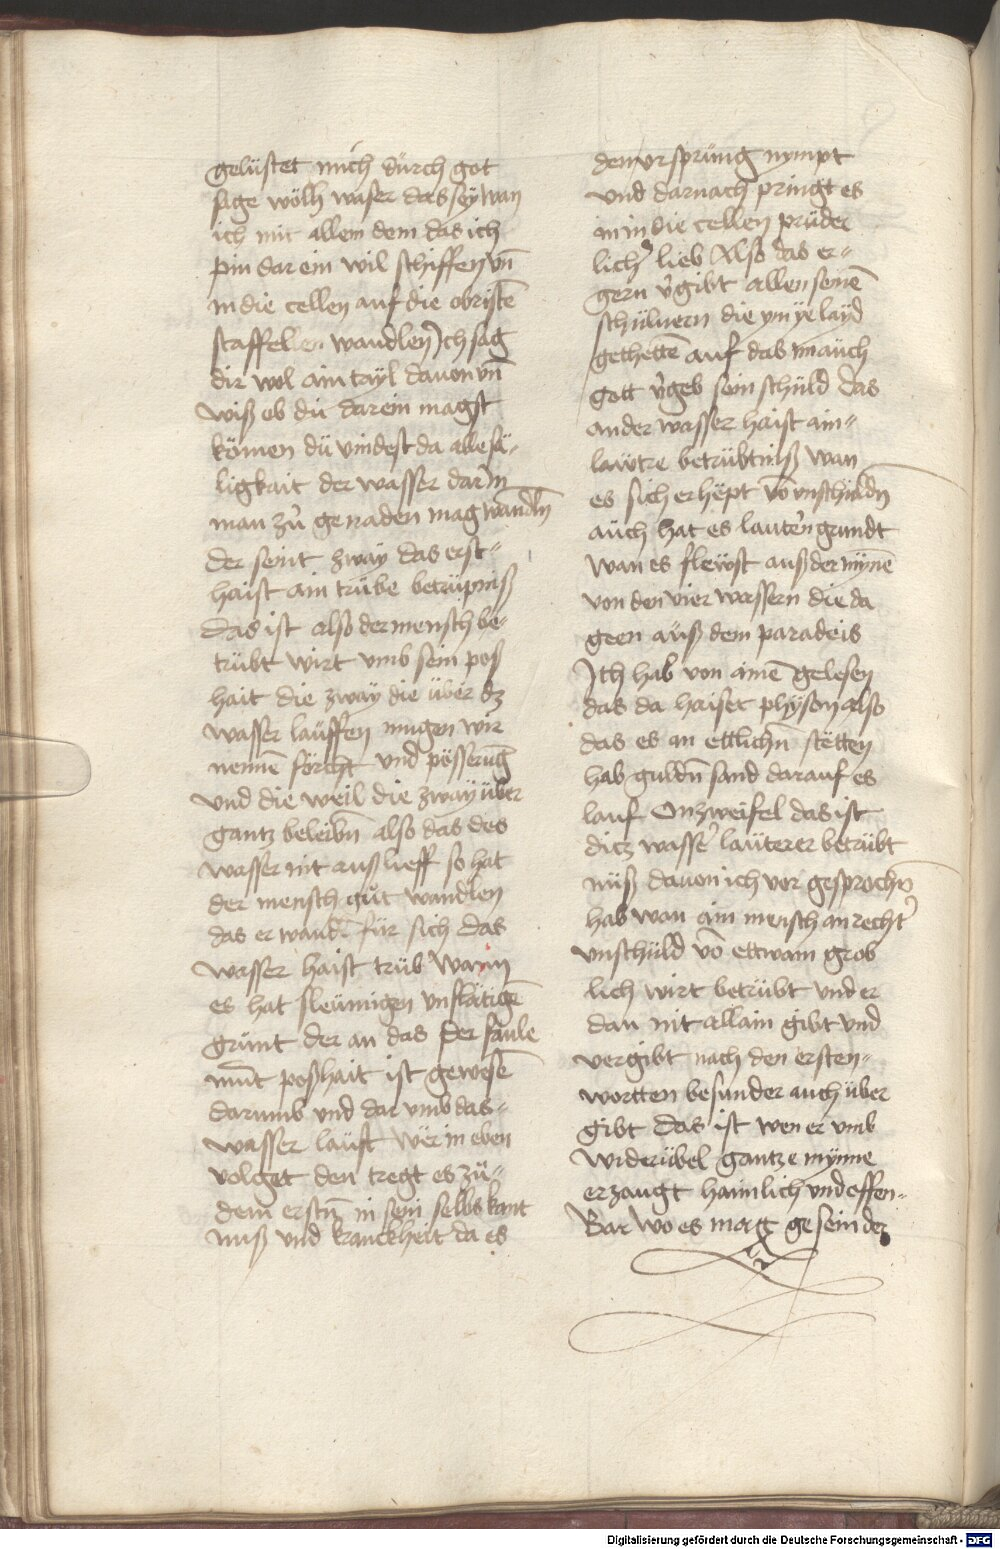 gelüstet mich dürch got
sage wölh waser das sey wan
ich mit allem dem das ich
pin dar ein wil schiffen vn̄
in die cellen auf die obristē
staffellen wandlen Ich sag
dir wol ain tayl dauon vn̄
wiß ob dü darein magst
kömen dü vindest da alle sä-
ligkait der wasser dar in
man zu genaden mag wandln̄
der seint zway das erst-
haist ain trübe betrüpniß
das ist also der mensch be-
trübt wirt vmb sein pos
hait die zway die über dz
wasser lauffen mugen wir
nennē förcht vnd pösserung
vnd die weil die zway über
gantz beleibn̄ also das des
wasser nit auß lieff so hat
der mensch gut wandlen
das er wandl für sich das
wasser haist trüb wann
es hat sleümigen vnflätigē
grunt der an das der faule
munt poßhait ist gewesē
darumb vnd dar vmb das-
wasser lauft wer in eben
volget den tregt es zü-
dem erstn̄ in sein selbs kant
nuß vnd kranckheit da es
dem vrsprüng nympt
vnd darnach pringt es
in in die cellen prüder
licher lieb Also das er-
gern v'gibt allen seinē
schülnern die ym ye layd
gethettē auf das im auch
gott v'geb sein schüld das
ander wasser haist ain-
lawtre betrübtniß wan
es sich erhept võ vnschüldn̄
auch hat es lautern grundt
wan es flewst auß der mynē
von den vier wassern die da
geen auß dem paradeis
Ich hab von ainē gelesen
das da haiset physon also
das es an ettlichn̄ stetten
hab guldn̄ sand darauf es
lauf On zweifel das ist
ditz wasser lauterer betrübt
nüß dauon ich vor gesprochn̄
hab wan ain mensch an recht'
vnschuld võ ettwam grob
lich wirt betrübt vnd er
dan nit allain gibt vnd
vergibt nach den ersten-
wortten besunder auch über
gibt das ist wen er vmb
widerübel gantze mynne
erzaugt haimlich vnd offen-
Bar wo es mag gesein der
Digitalisierung gefördert durch die Deutsche Forschungsgemeinschaft - DFG